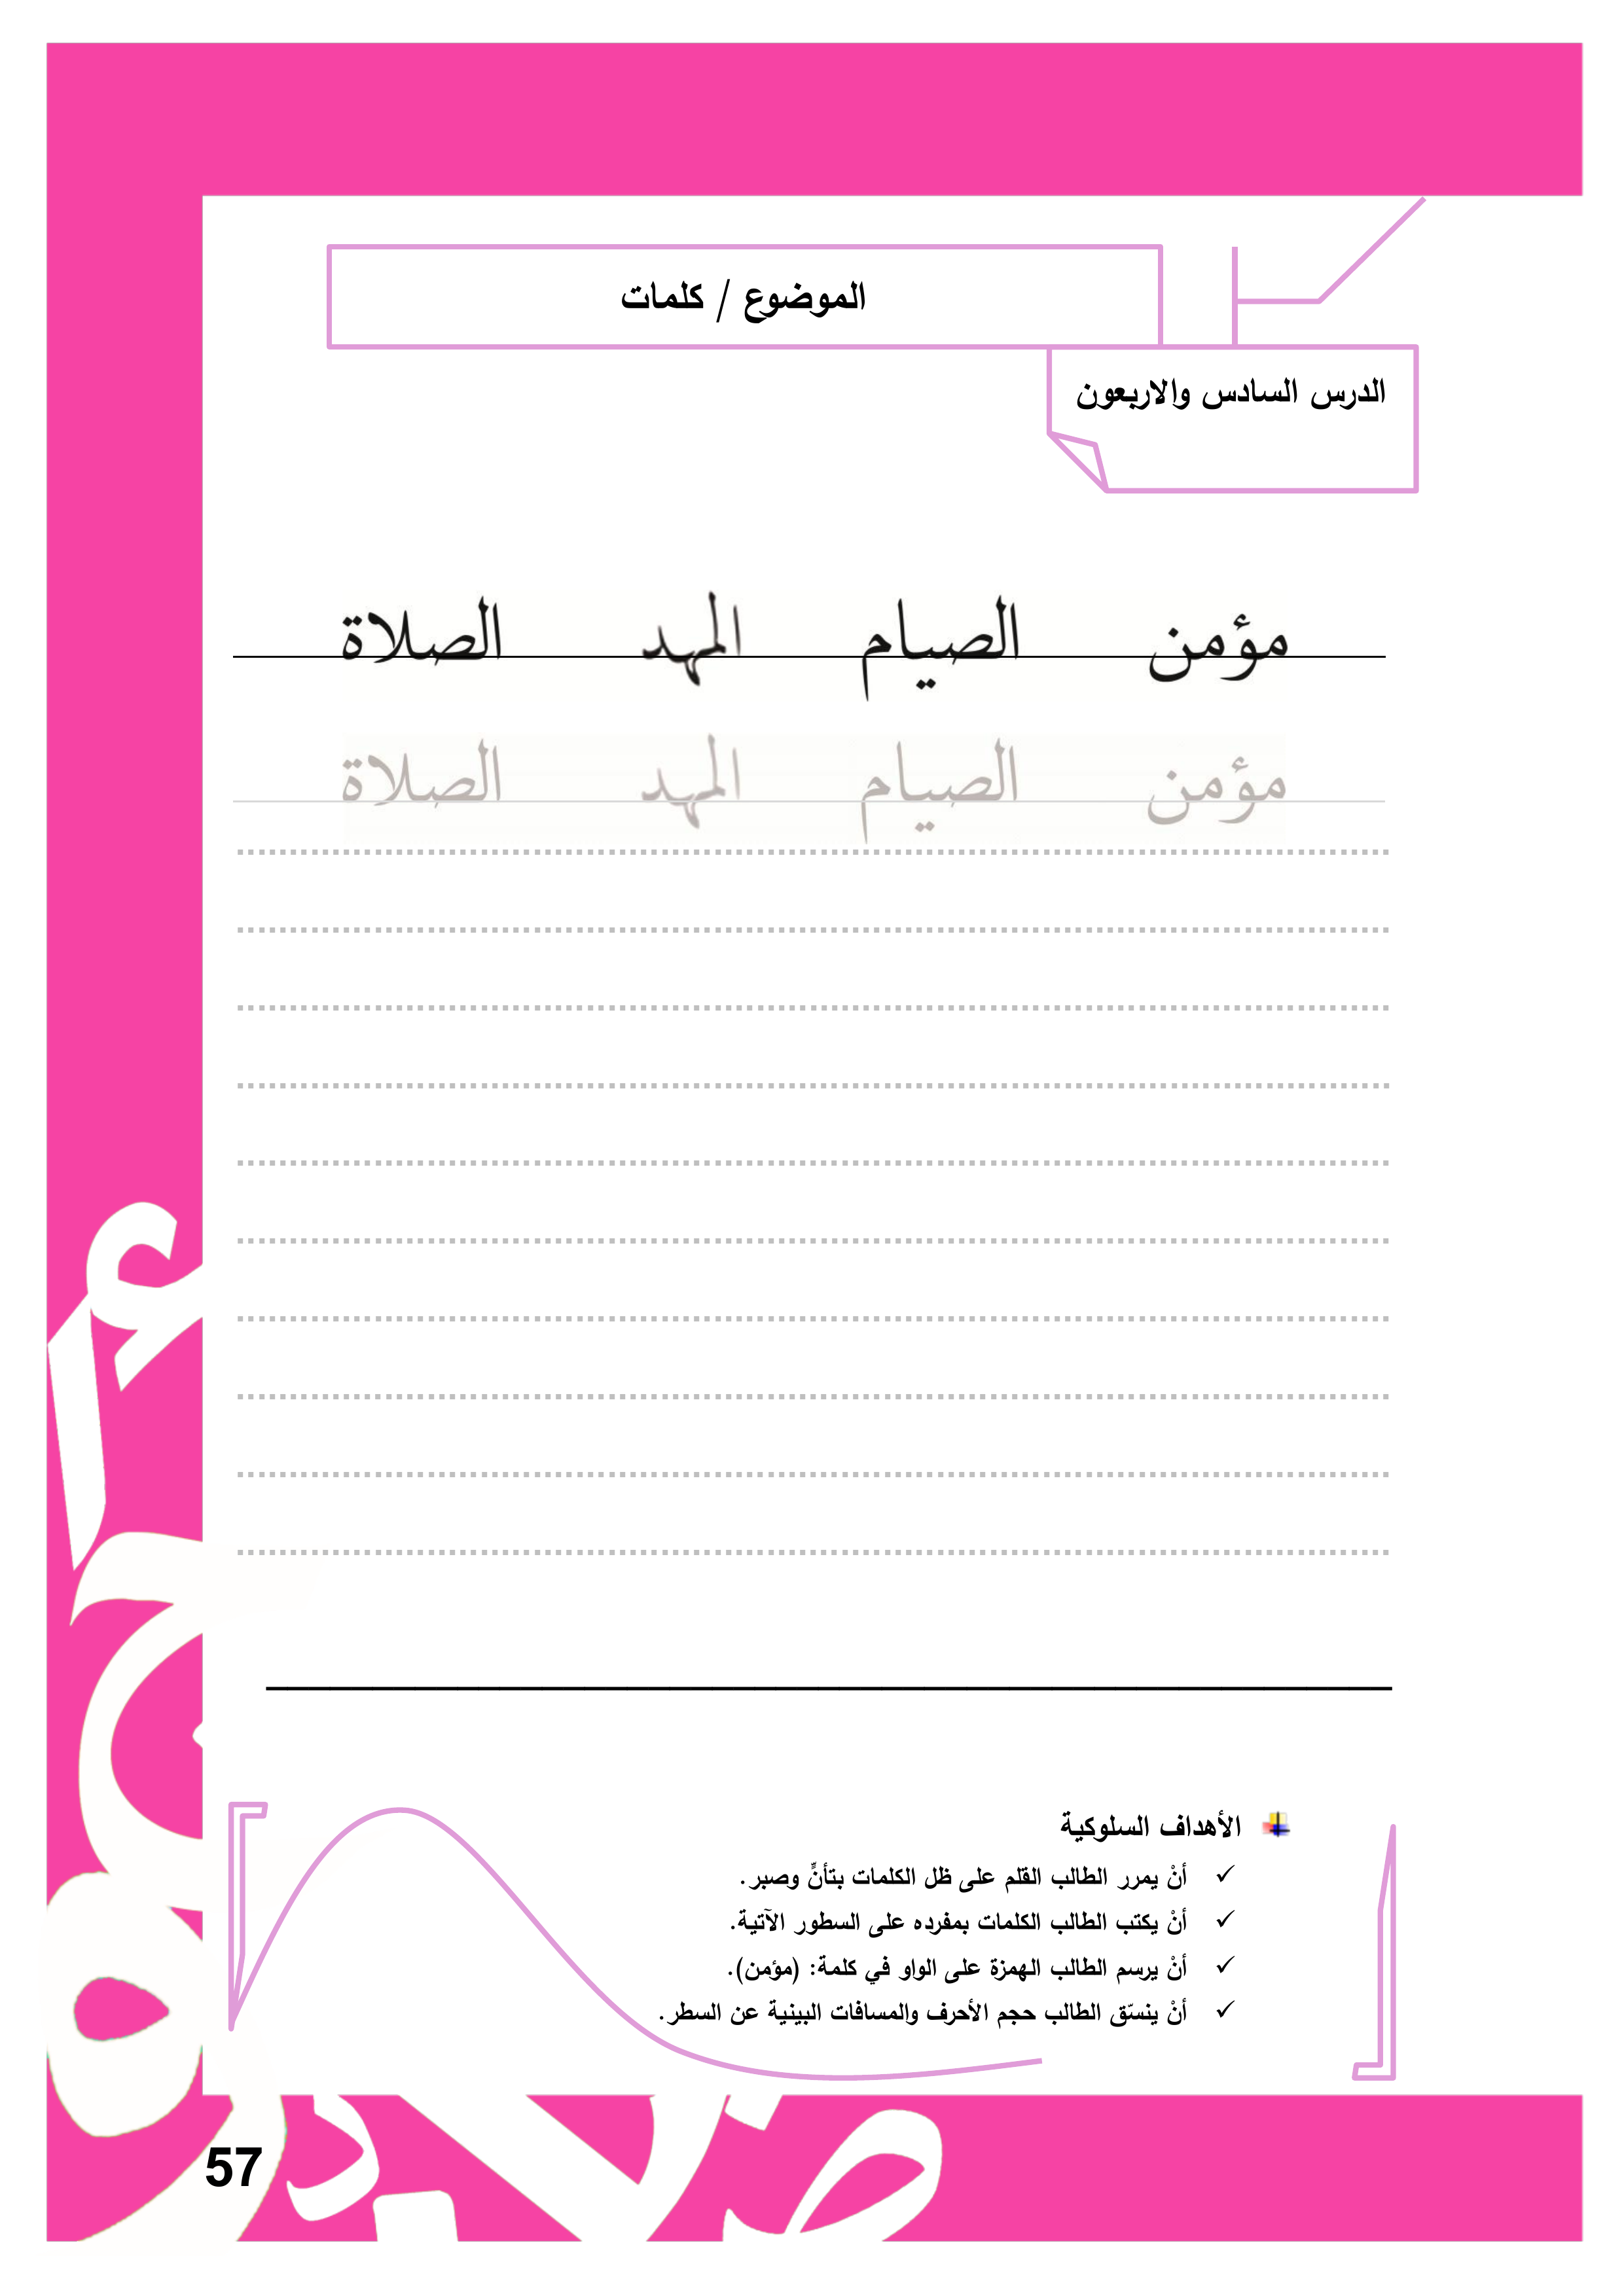 الموضوع / كلمات
الدرس السادس والاربعون
مؤمن الصيام المهد الصلاة
مؤمن الصيام المهد الصلاة
الأهداف السلوكية
أنْ يمرر الطالب القلم على ظل الكلمات بتأنٍّ وصبر.
أنْ يكتب الطالب الكلمات بمفرده على السطور الآتية.
أنْ يرسم الطالب الهمزة على الواو في كلمة: (مؤمن).
أنْ ينسّق الطالب حجم الأحرف والمسافات البينية عن السطر.
57